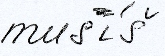 musíš